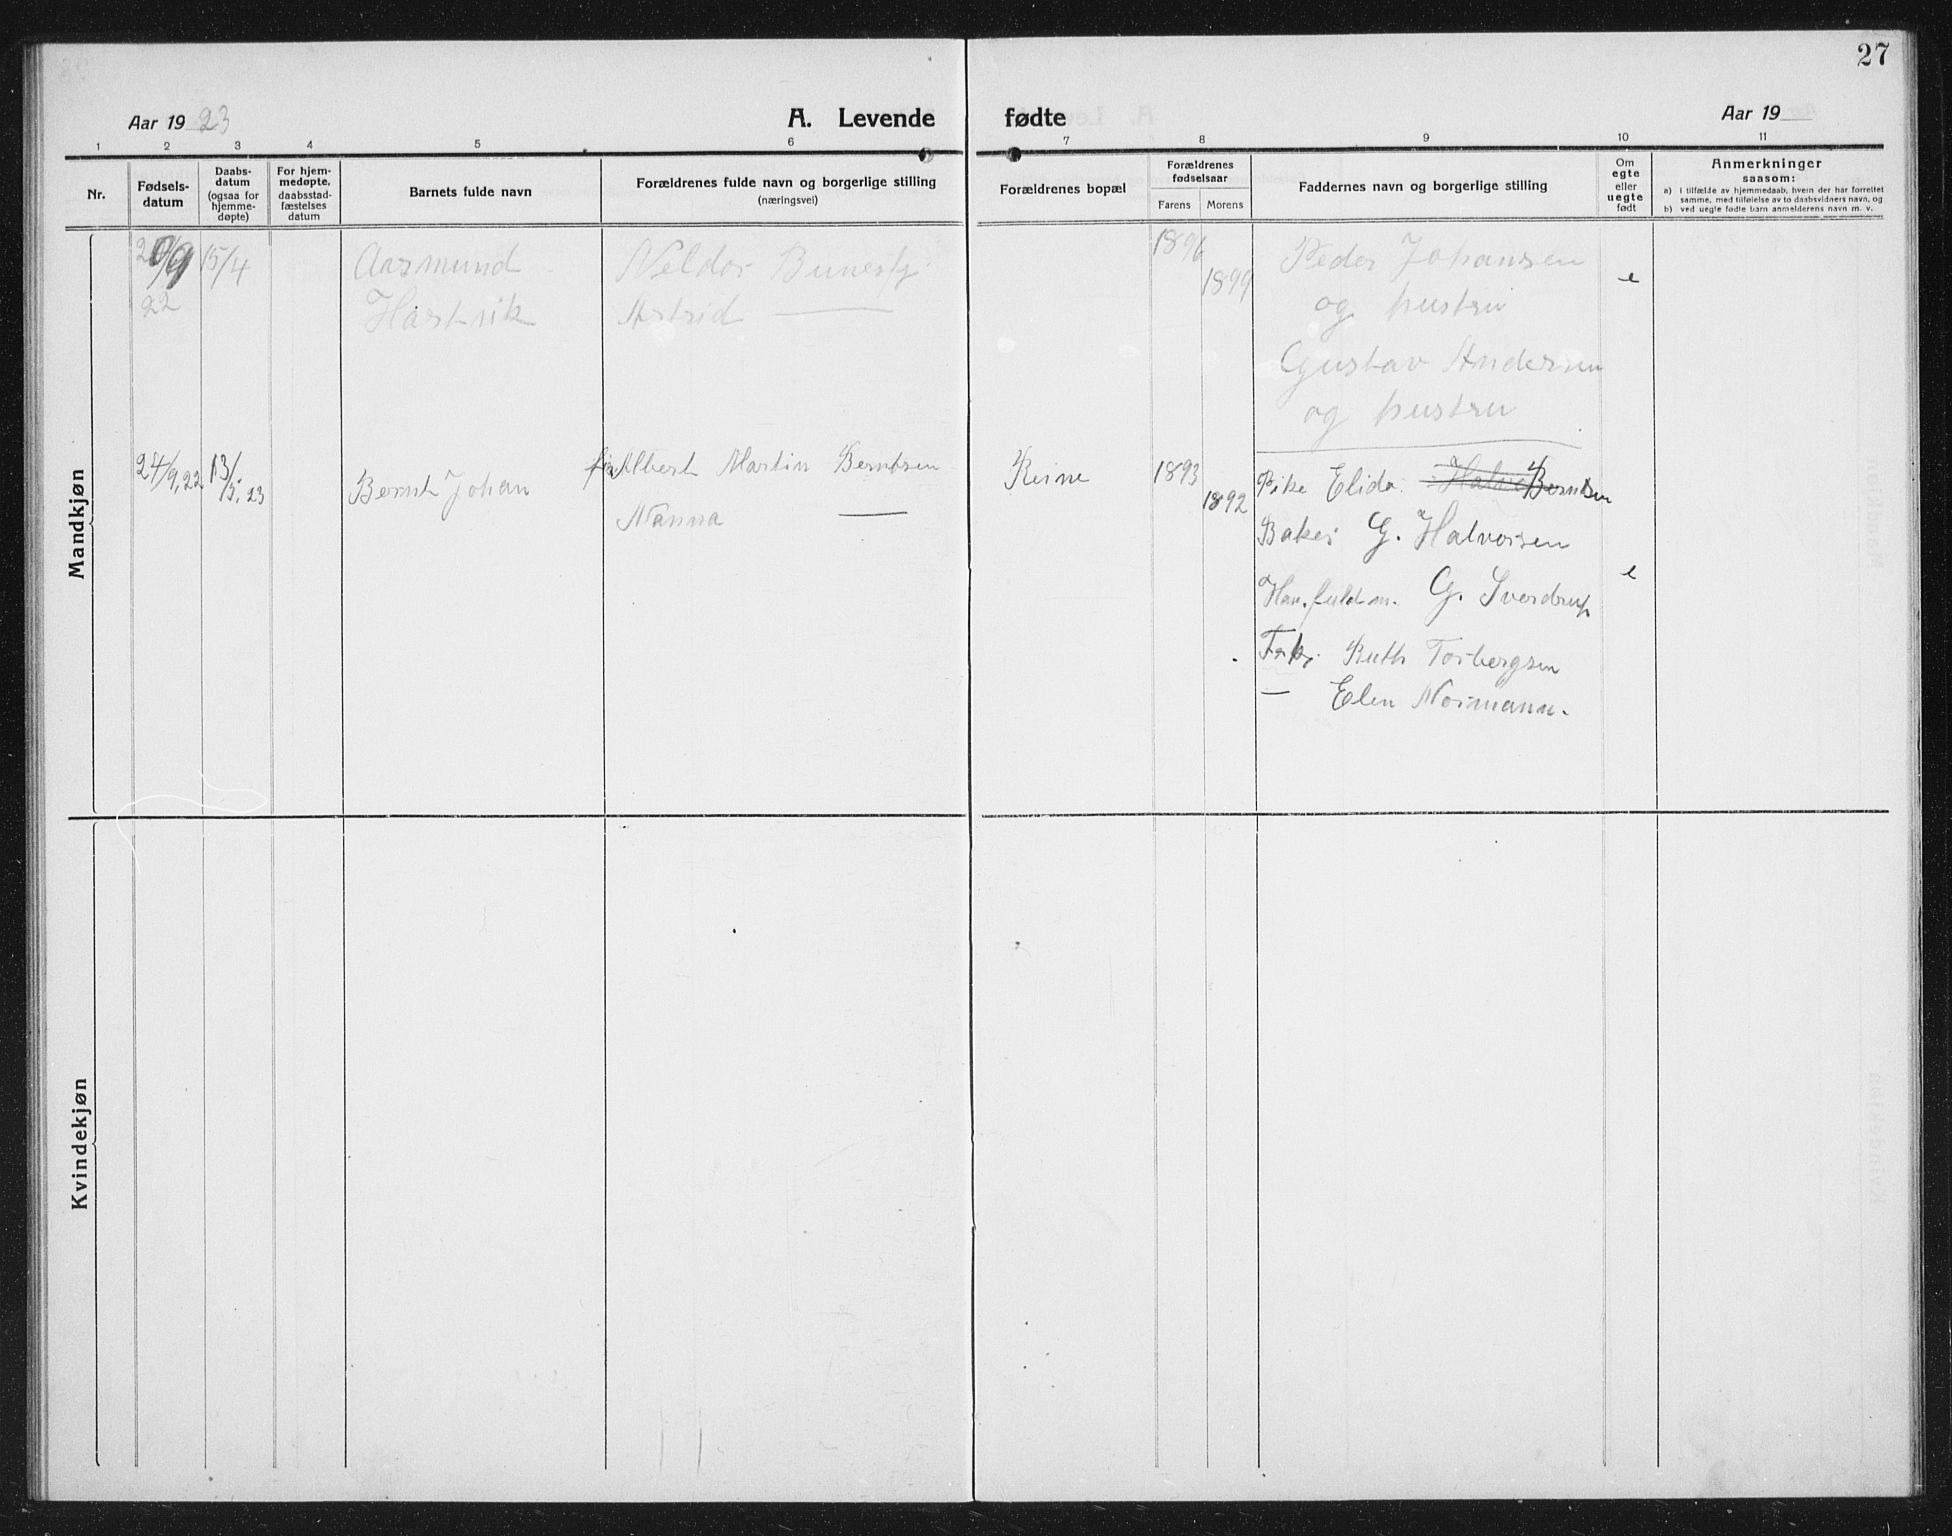 27
Aar 1923
A. Levende
fødte
Aar 19
1 2 3 4 5 6 7 8 9 10 11
Nr.
Fødsels-
datum
Daabs-
datum
(ogsaa for
hjemme-
døpte)
For hjem-
medøpte,
daabsstad-
fæstelses
datum
Barnets fulde navn
Forældrenes fulde navn og borgerlige stilling
(næringsvei)
Forældrenes bopæl
Forældrenes
fødselsaar
Farens Morens
Faddernes navn og borgerlige stilling
Om
egte
eller
uegte
født
Anmerkninger
saasom:
a) I tilfælde av hjemmedaab, hvem der har forrettet
samme, med tilføielse av to daabsvidners navn, og
b) ved uegte fødte barn anmelderens navn m. v.
Mandkjøn
15/4
22
Aasmund
Hartvik
Astrid —
1896
1899
Peder Johansen
og hustru
Gustav Andersen
og hustru
e
24/9, 22
13/5, 23
Bernt Johan
Albert Martin Berntsen
Nanna —
Reine
1893
1892
Pike Elida Berntsen
Baker G. Halvorsen
G. Sverdrup
Frk. Ruth Torbergsen
— Elen Normann.
e
Kvindekjøn